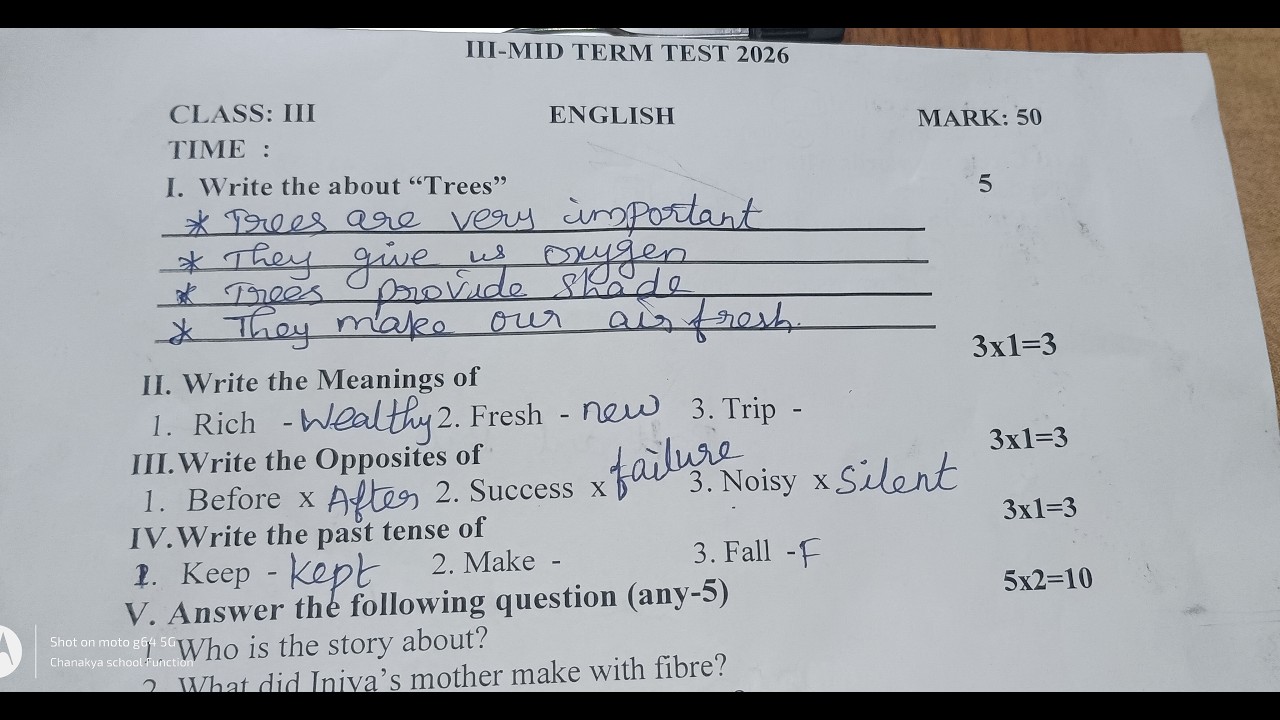 III-MID TERM TEST 2026
CLASS: III ENGLISH MARK: 50
TIME :
I. Write the about “Trees” 5
* Trees are very important
* They give us oxygen
* Trees provide shade
* They make our air fresh.
3x1=3
II. Write the Meanings of
1. Rich - Wealthy 2. Fresh - new 3. Trip -
3x1=3
III. Write the Opposites of
1. Before x After 2. Success x failure 3. Noisy x Silent
3x1=3
IV. Write the past tense of
1. Keep - kept 2. Make - 3. Fall - F
5x2=10
V. Answer the following question (any-5)
1. Who is the story about?
2. What did Iniya’s mother make with fibre?
Shot on moto g64 5G
Chanakya school Function